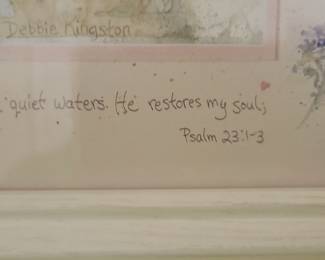 Debbie Kingston
quiet waters. He restores my soul;
Psalm 23:1-3